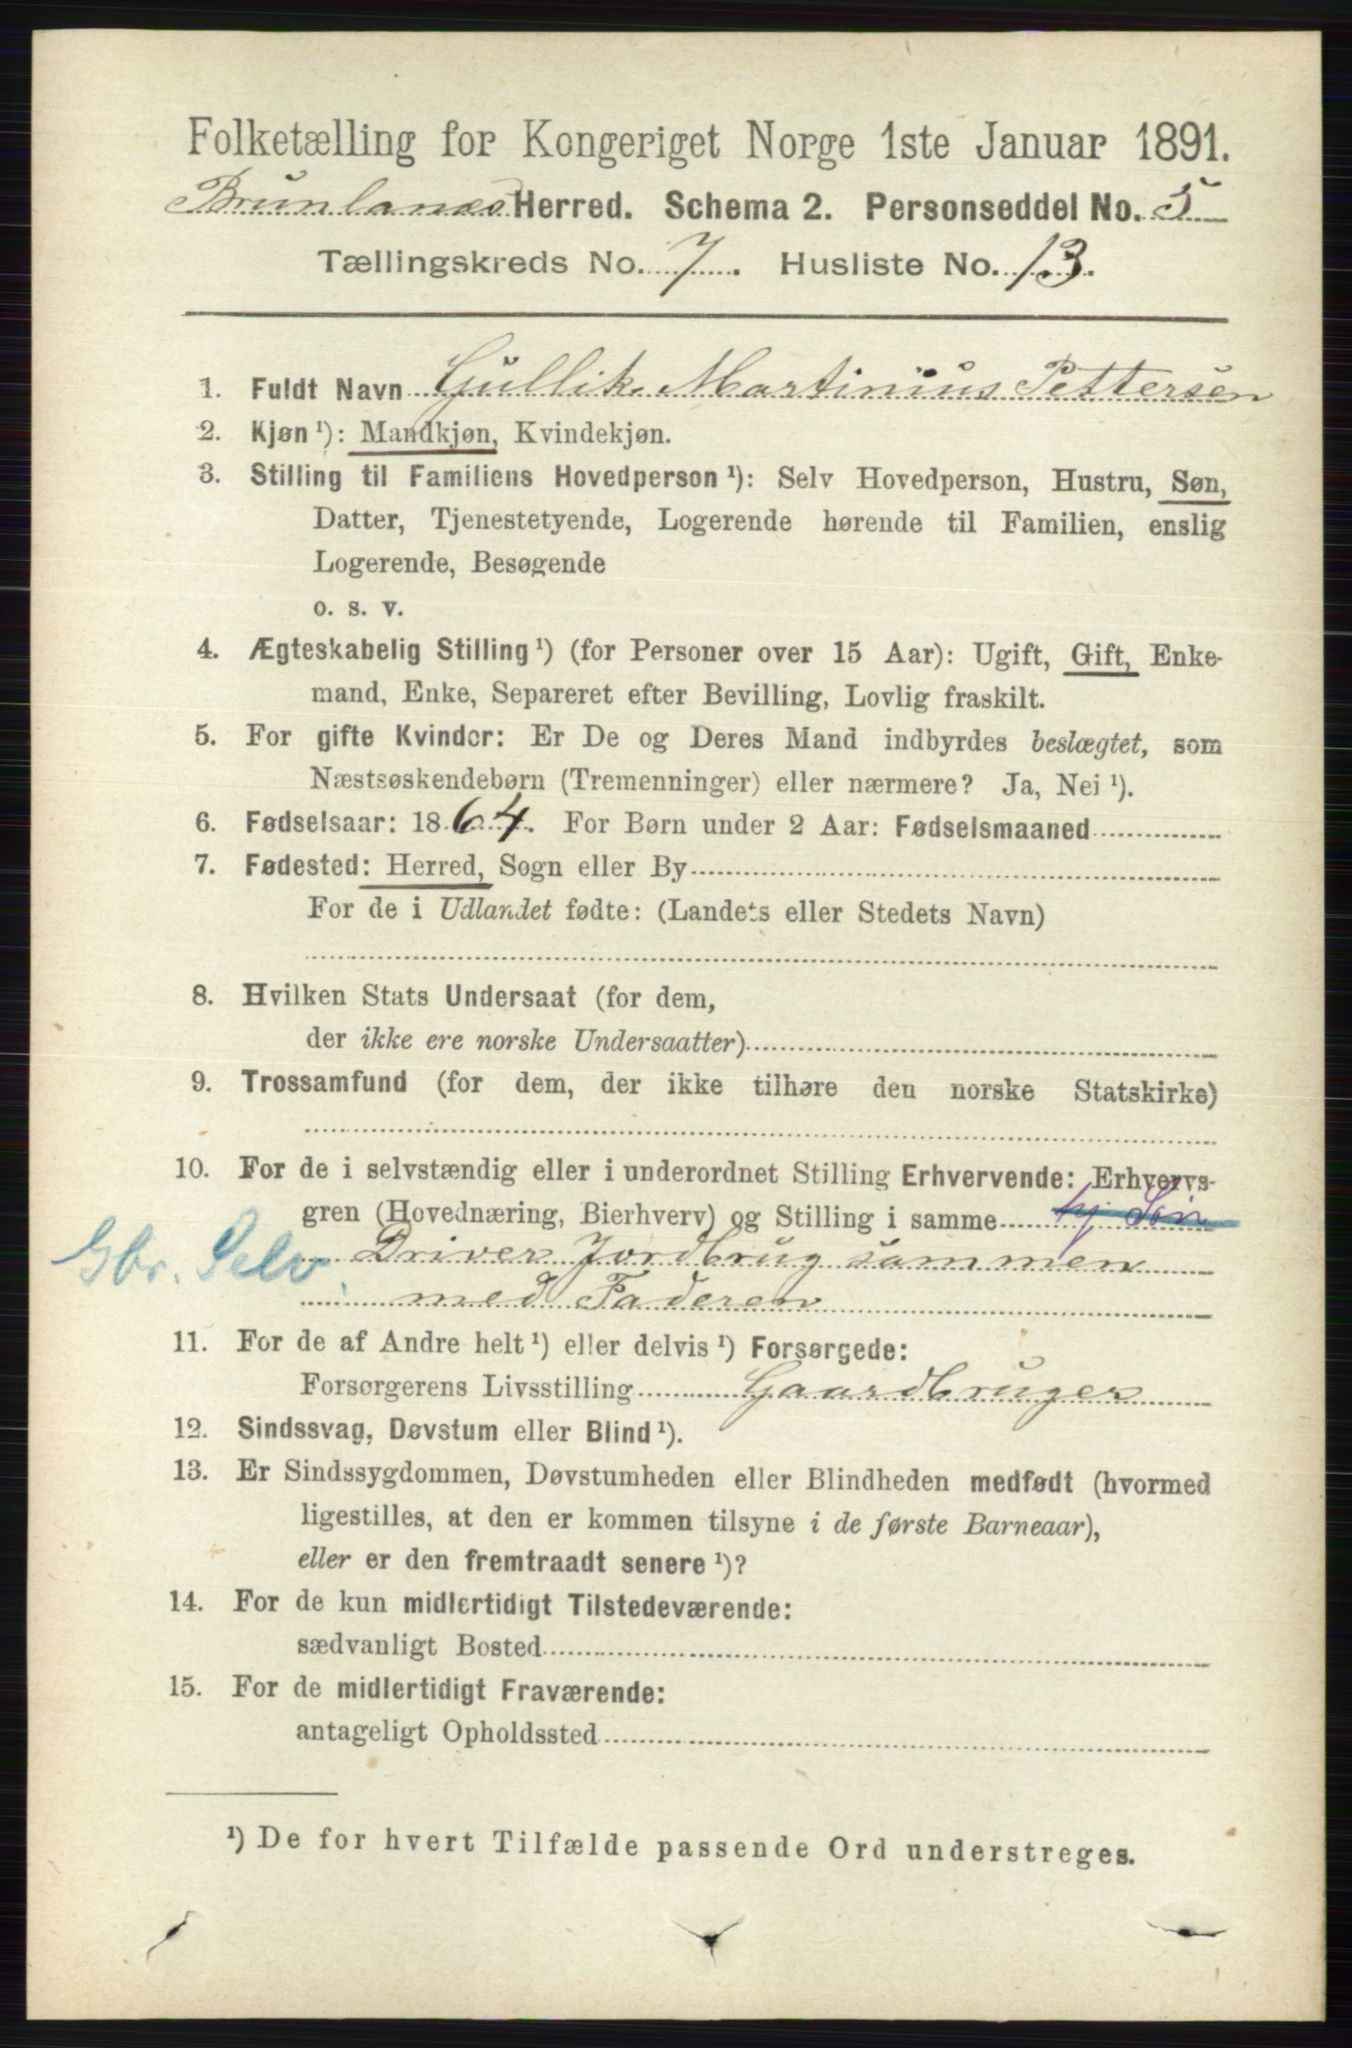 Folketælling for Kongeriget Norge 1ste Januar 1891.
Brunlanæs Herred. Schema 2. Personseddel No. 5
Tællingskreds No. 7. Husliste No. 13.
1. Fuldt Navn Gullik Martinius Pettersen
2. Kjøn ¹): Mandkjøn, Kvindekjøn.
3. Stilling til Familiens Hovedperson ¹): Selv Hovedperson, Hustru, Søn,
Datter, Tjenestetyende, Logerende hørende til Familien, enslig
Logerende, Besøgende
o. s. v.
4. Ægteskabelig Stilling ¹) (for Personer over 15 Aar): Ugift, Gift, Enke-
mand, Enke, Separeret efter Bevilling, Lovlig fraskilt.
5. For gifte Kvinder: Er De og Deres Mand indbyrdes beslægtet, som
Næstsøskendebørn (Tremenninger) eller nærmere? Ja, Nei ¹).
6. Fødselsaar: 1864. For Børn under 2 Aar: Fødselsmaaned
7. Fødested: Herred, Sogn eller By
For de i Udlandet fødte: (Landets eller Stedets Navn)
8. Hvilken Stats Undersaat (for dem,
der ikke ere norske Undersaatter)
9. Trossamfund (for dem, der ikke tilhøre den norske Statskirke)
10. For de i selvstændig eller i underordnet Stilling Erhvervende: Erhvervs-
gren (Hovednæring, Bierhverv) og Stilling i samme hj Søn
Gbr. Selv. Driver Jordbrug sammen
med Faderen
11. For de af Andre helt ¹) eller delvis ¹) Forsørgede:
Forsørgerens Livsstilling Gaardbruger
12. Sindssvag, Døvstum eller Blind ¹).
13. Er Sindssygdommen, Døvstumheden eller Blindheden medfødt (hvormed
ligestilles, at den er kommen tilsyne i de første Barneaar),
eller er den fremtraadt senere ¹)?
14. For de kun midlertidigt Tilstedeværende:
sædvanligt Bosted
15. For de midlertidigt Fraværende:
antageligt Opholdssted
¹) De for hvert Tilfælde passende Ord understreges.